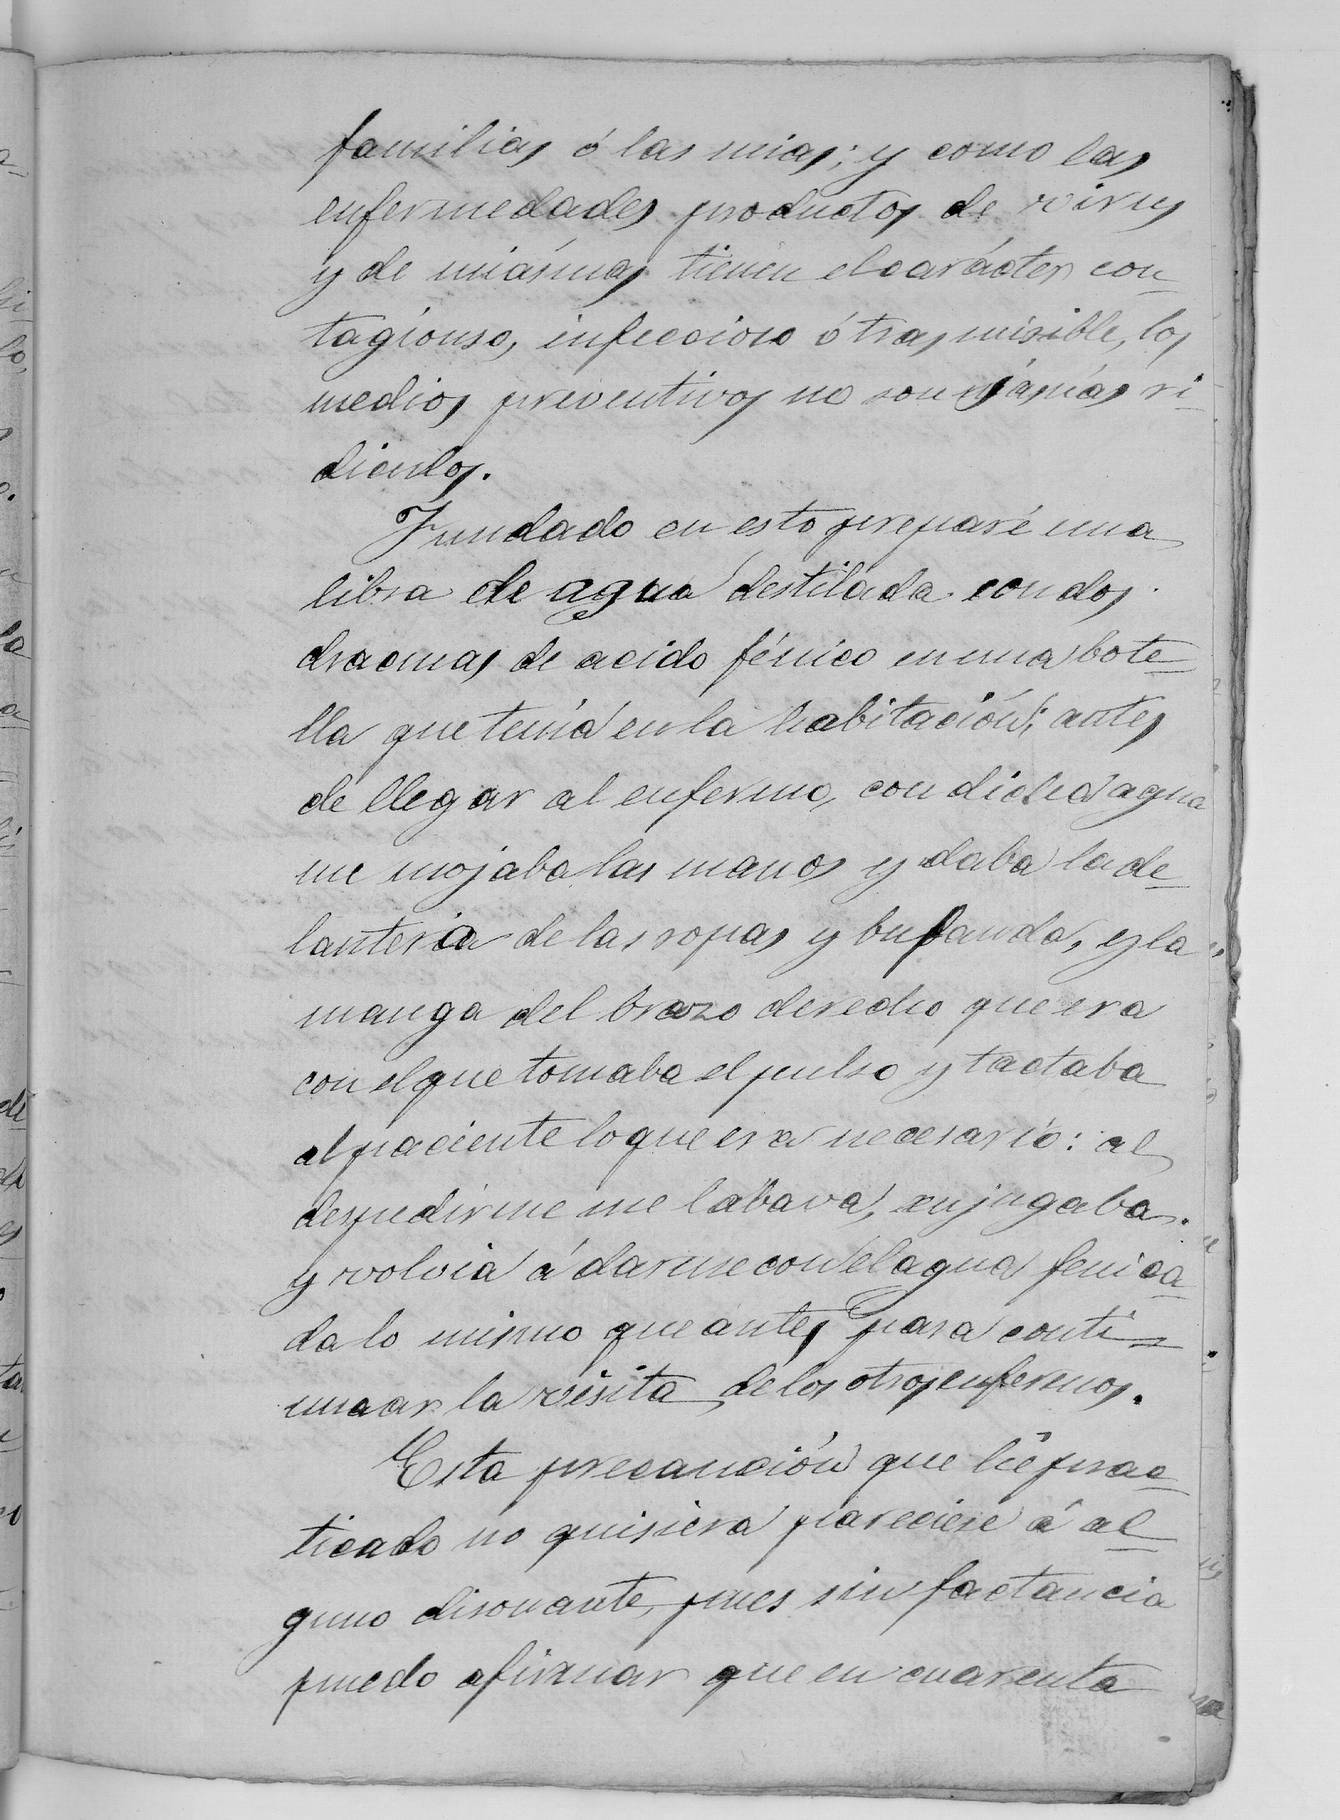 familias ó las mias; y como las
enfermedades productos de virus
y de miásmas tienen el carácter con
tagiouso, infeccioso ó trasmisible, los
medios preventivos no son manías ri
diculos.
Fundado en esto preparé una
libra de agua destilada con dos
dracmas de acido fénico en una bote
lla que tenía en la habitación; antes
de llegar al enfermo, con dicha agua
me mojaba las manos y daba la de
lanteria de las ropas y bufanda, y la
manga del brazo derecho que era
con el que tomaba el pulso y tactaba
al paciente lo que era necesario: al
despedirme me labava, enjugaba
y volvia á darme con el agua fenica
da lo mismo que antes para conti
nuaar la visita de los otros enfermos.
Esta precaución que hé prac
ticado no quisiera pareciese á al
guno disonante, pues sin factancia
puedo afirmar que en cuarenta